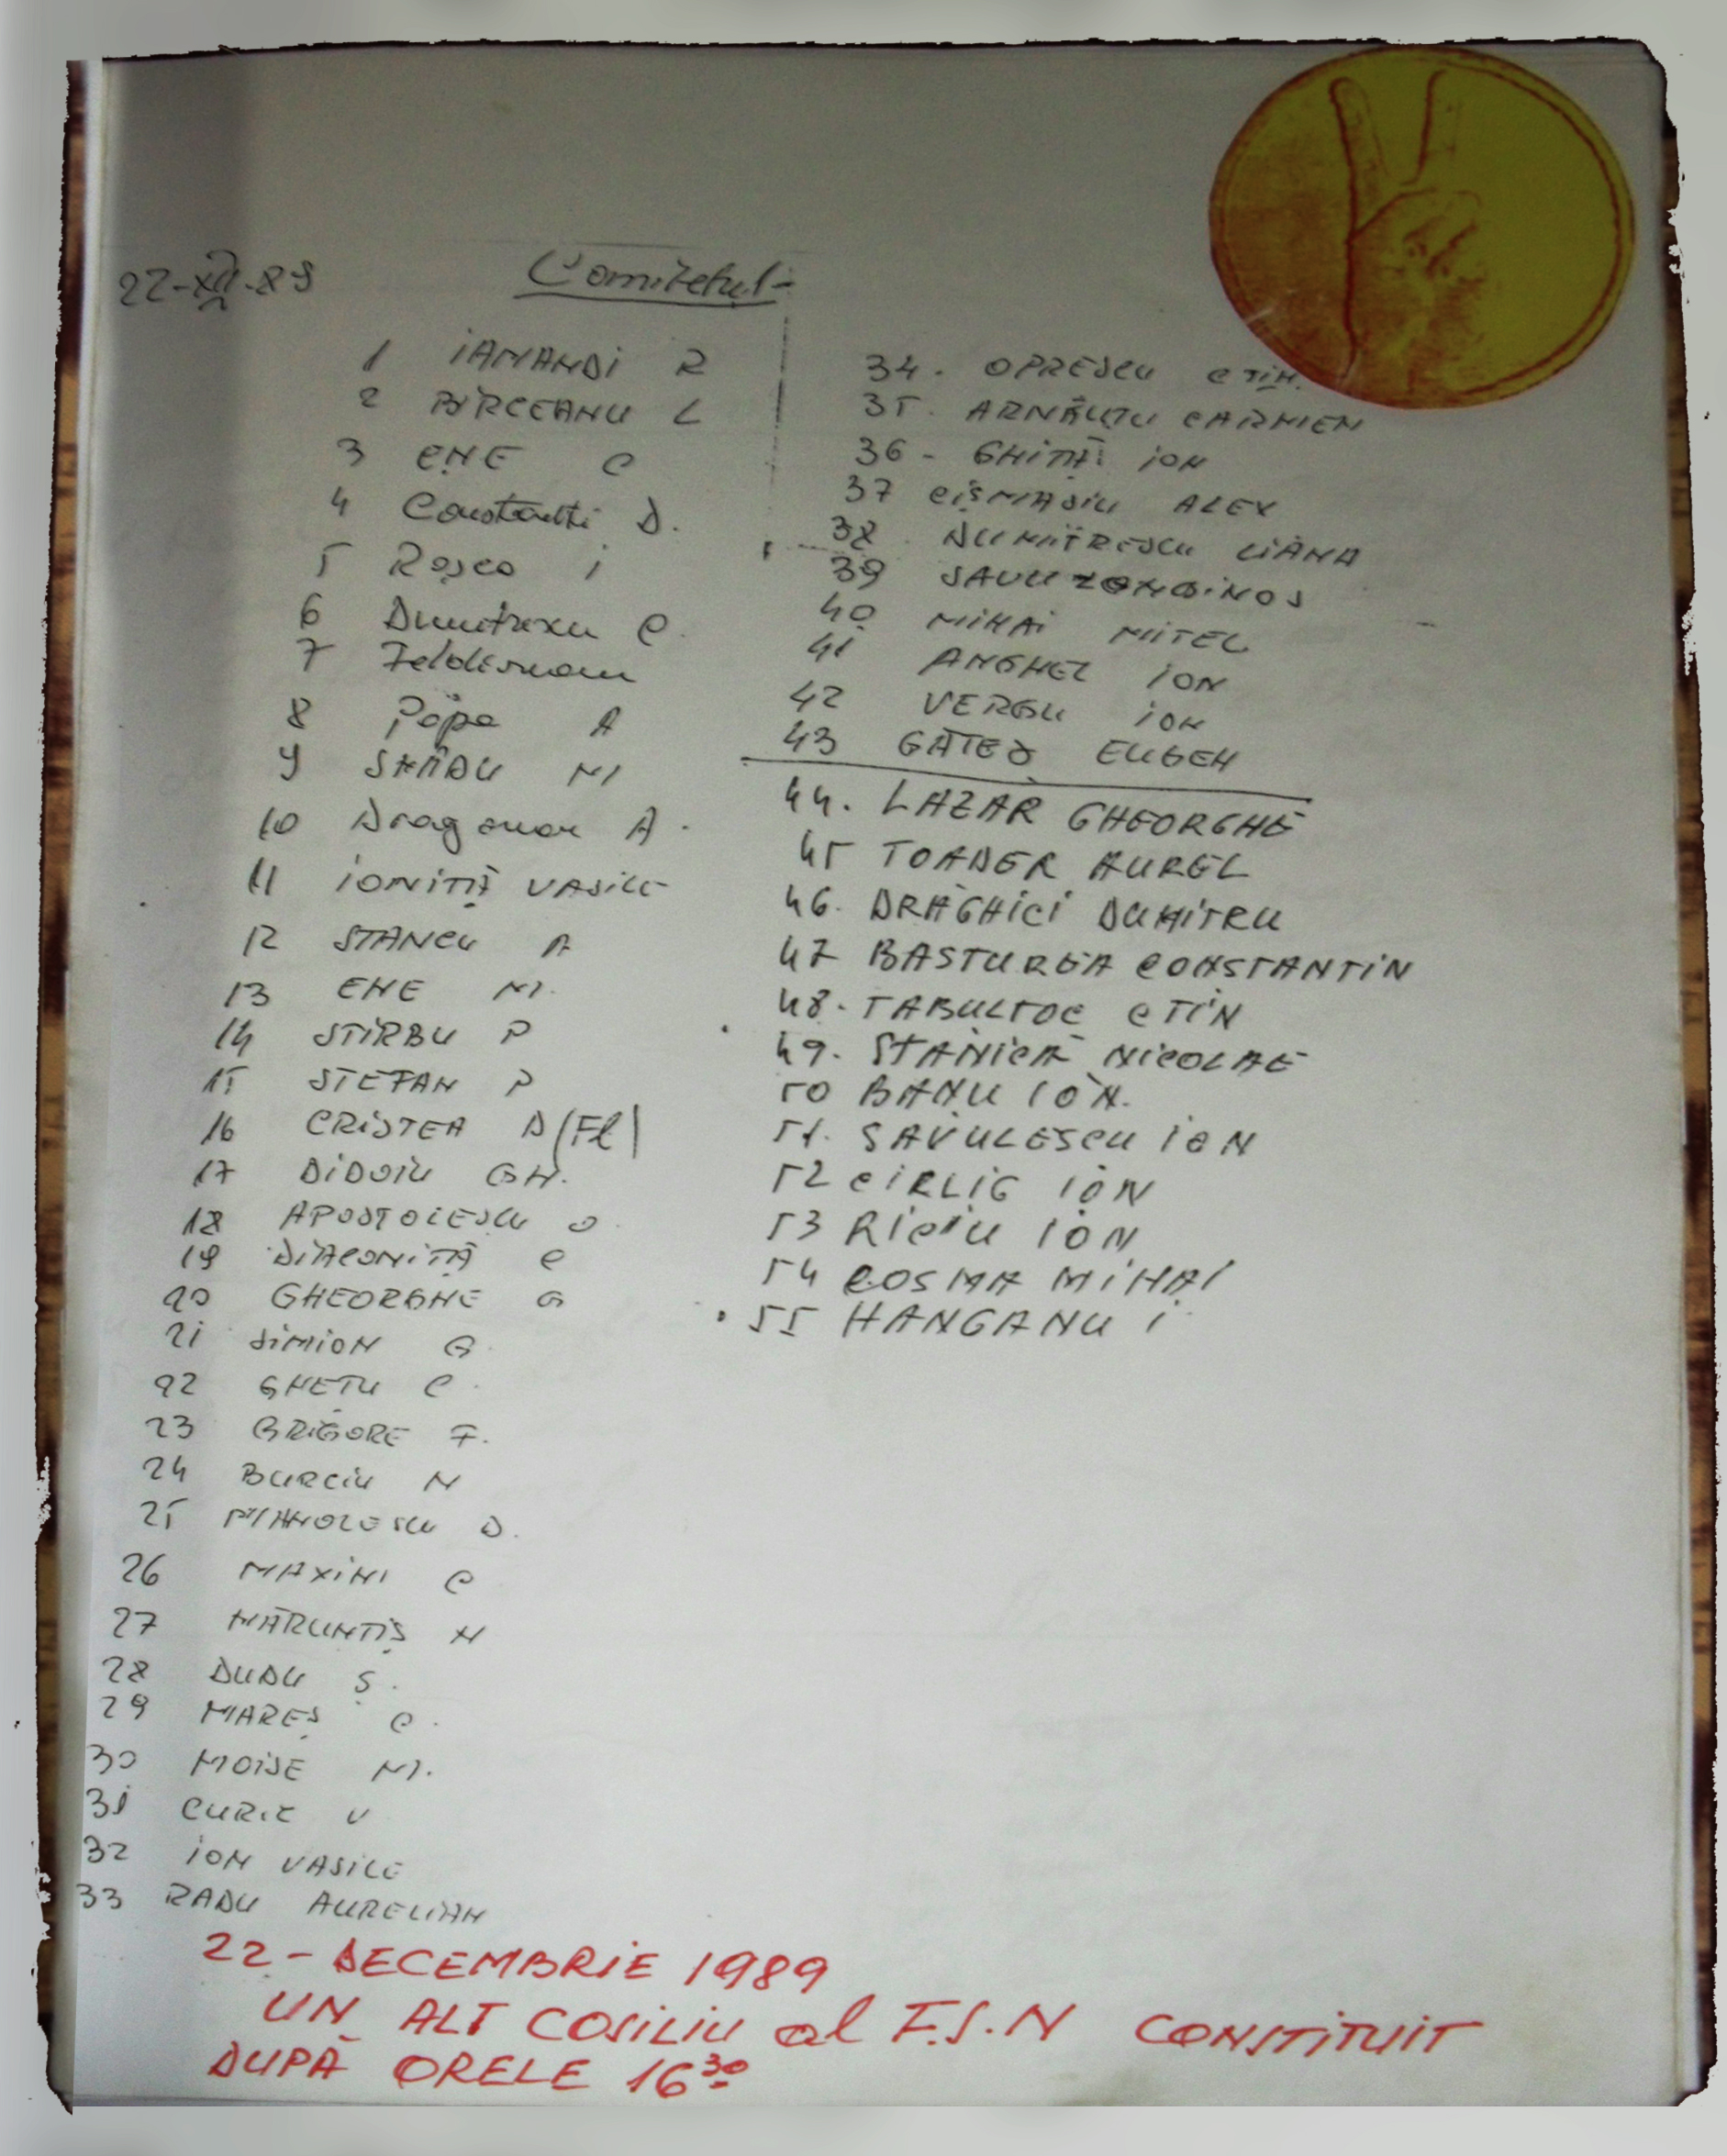 22-XII-89
Comitetul-
1 IAMANDI R
2 BÎRCEANU L
3 ENE C
4 Constantin D.
5 Roșca I
6 Dumitrescu C.
7 Feldesman
8 Popa A
9 M
10 A.
11 IONIȚĂ VASILE
12 STANCU A
13 ENE M.
14 STIRBU P
15 STEFAN P
16 CRISTEA D (Fl)
17 DIDOIU GH.
18 APOSTOLESCU O.
19 DIACONIȚĂ C
20 GHEORGHE G
21 SIMION G.
22 GHEȚU C.
23 GRIGORE F.
24 BURCIU N
25 MANOLESCU D.
26 MAXIM C
27 MĂRUNTIȘ N
28 DUDU S.
29 MAREȘ C.
30 MOISE M.
31 V
32 ION VASILE
33 RADU AURELIAN
34. OPRESCU CTIN.
35. ARNĂUTU CARMEN
36- GHIȚĂ ION
37 CIȘMASIU ALEX
38. DUMITRESCU LIANA
39 SAVU
40 MIHAI MITEL
41 ANGHEL ION
42 VERGU ION
43 GÂTEJ EUGEN
44. LAZĂR GHEORGHE
45 TOADER AUREL
46. DRĂGHICI DUMITRU
47 BASTUREA CONSTANTIN
48. TABULTOC CTIN
49. STĂNICĂ NICOLAE
50 BANU ION.
51. SAVULESCU ION
52 CIRLIG ION
53 RICIU ION
54 COSMA MIHAI
55 HANGANU I
22-DECEMBRIE 1989
UN ALT COSILIU al F.S.N CONSTITUIT
DUPĂ ORELE 16³⁰